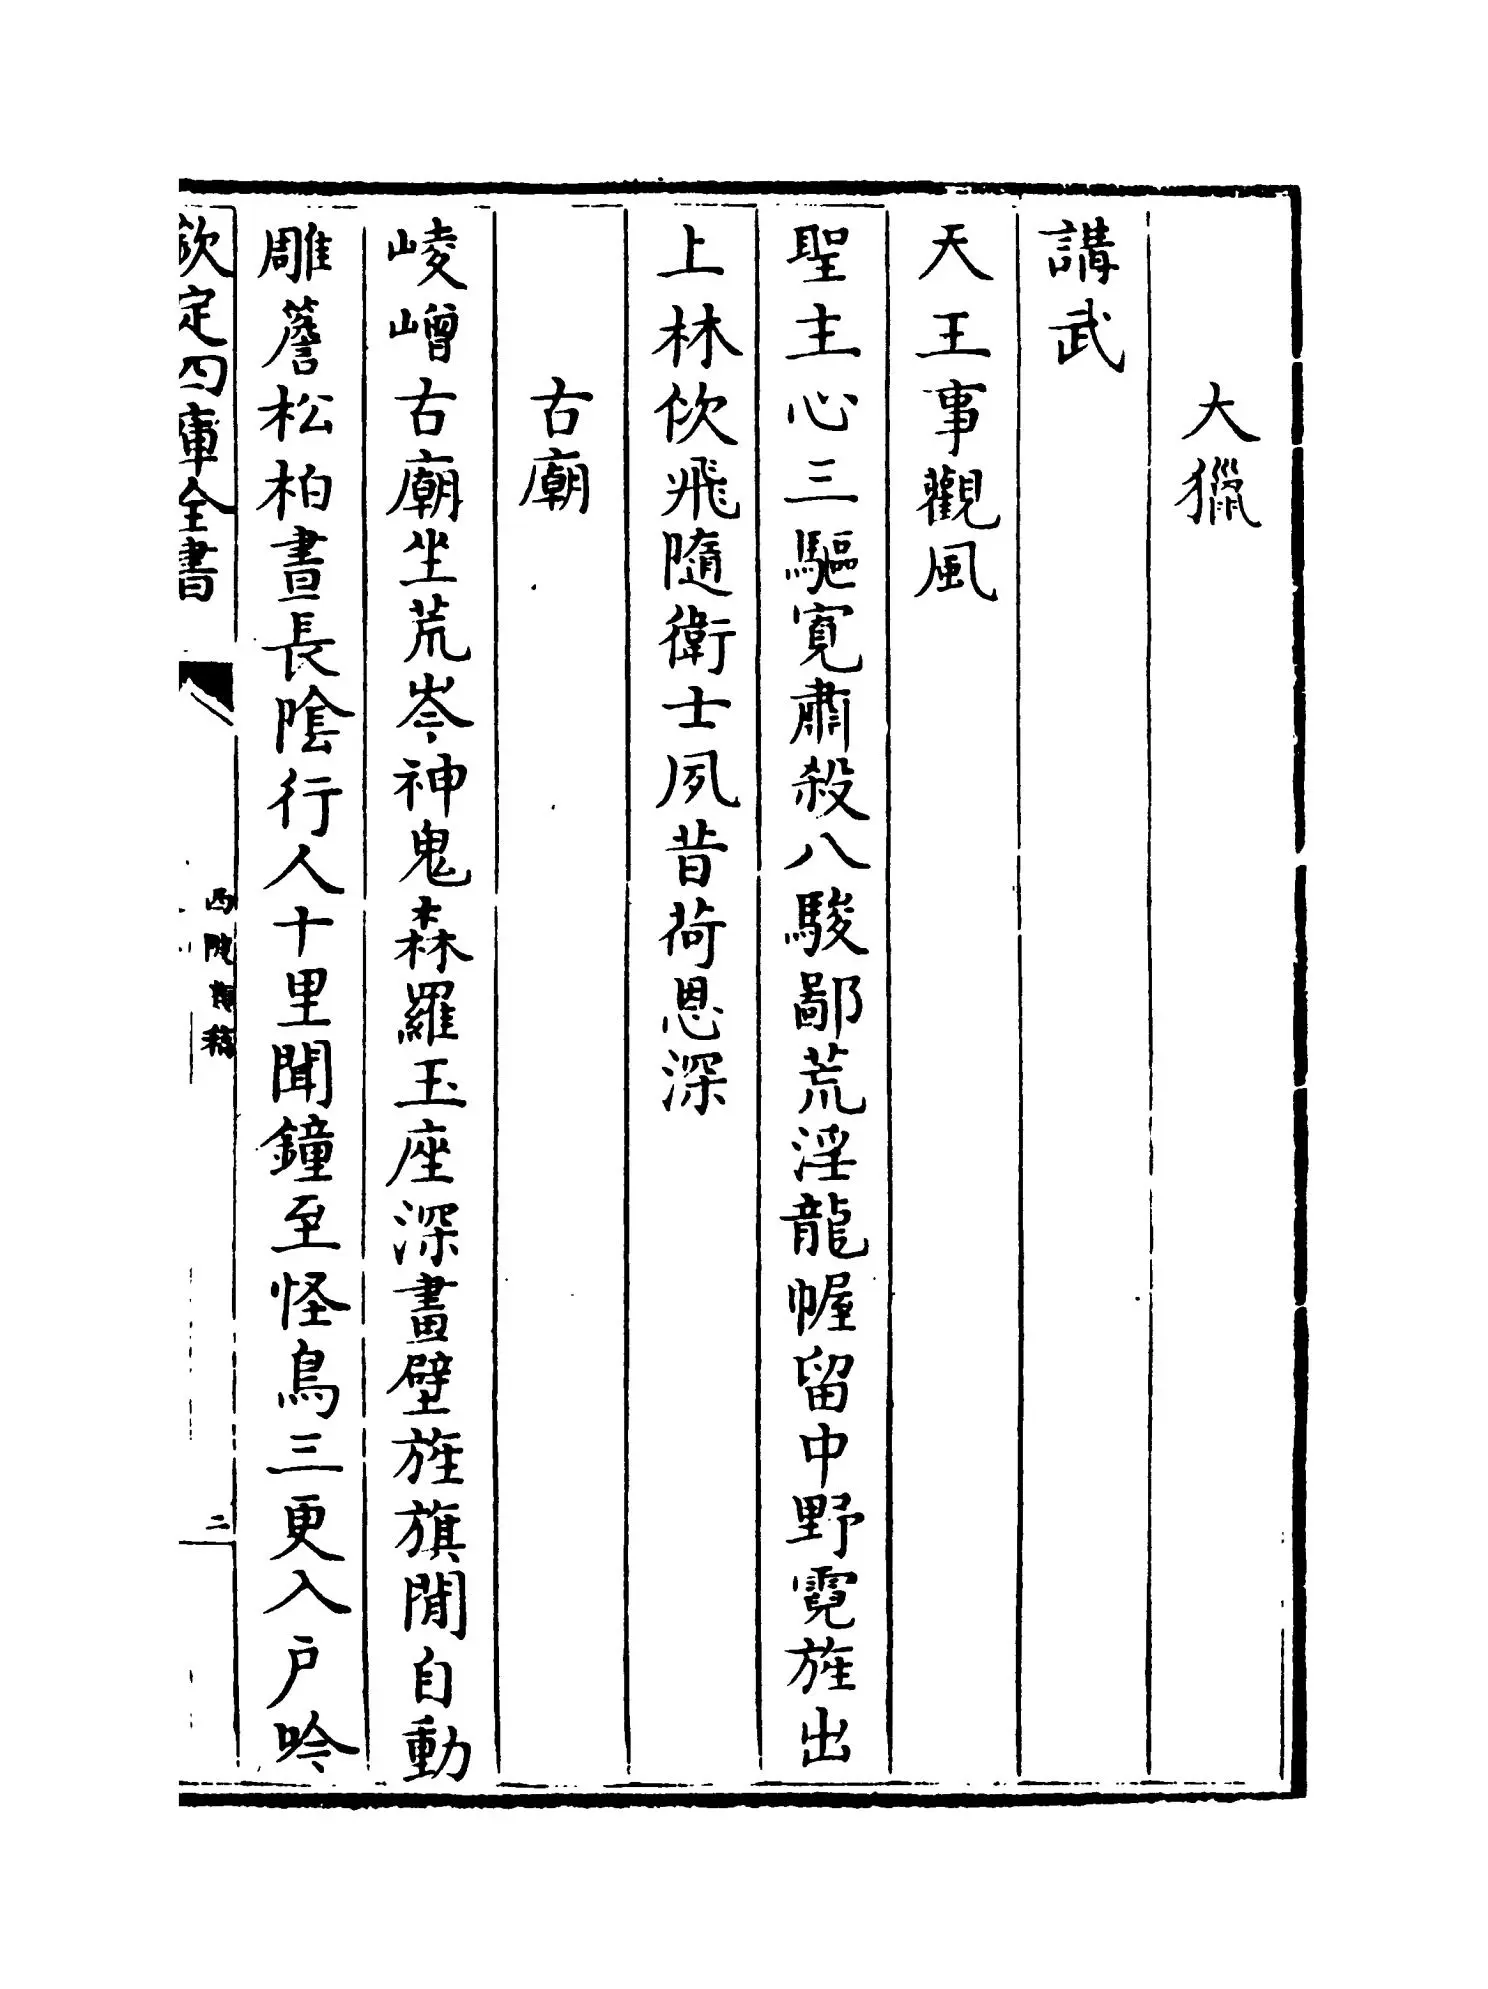 大獵
講武
天王事觀風
聖主心三驅寛肅殺八駿鄙荒淫龍幄留中野霓旌出
上林佽飛隨衛士夙昔荷恩深
古廟
崚嶒古廟坐荒岑神鬼森羅玉座深畫壁旌旗閒自動
雕簷松柏晝長陰行人十里聞鐘至怪鳥三更入戶吟
欽定四庫全書
西隠集稿
二